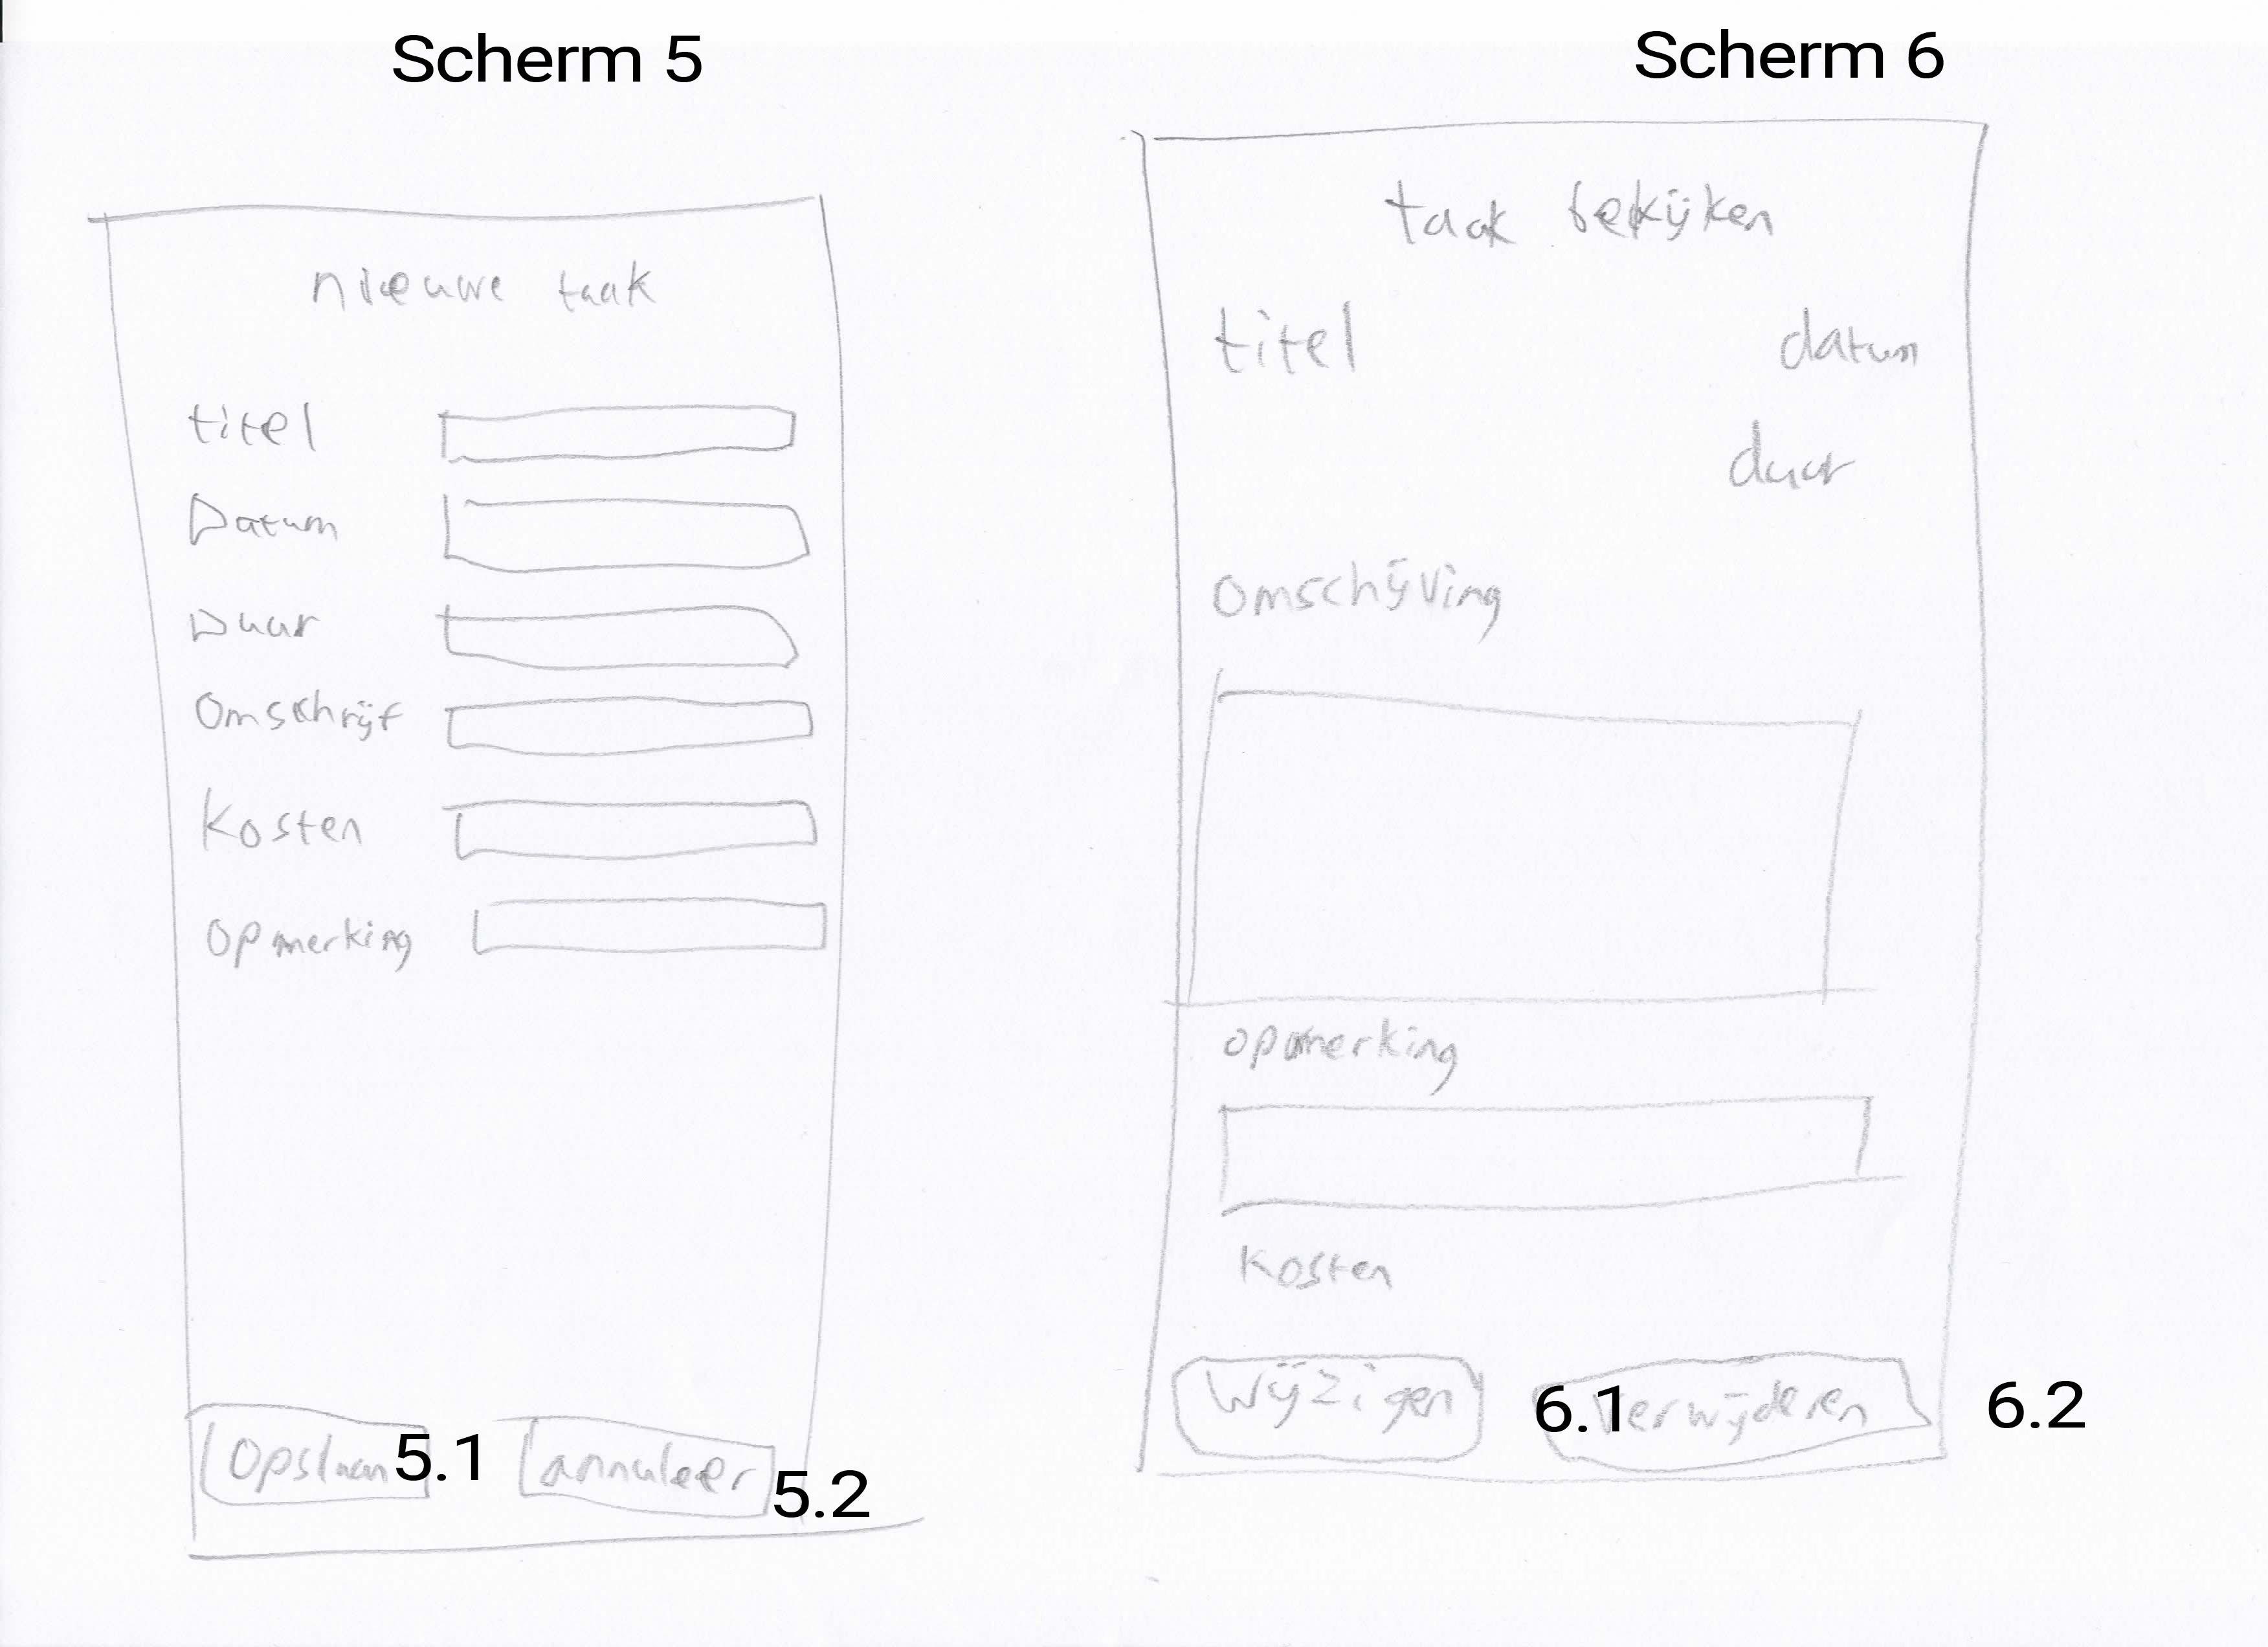 Scherm 5
nieuwe taak
titel
Datum
Duur
Omschrijf
Kosten
Opmerking
Opslaan 5.1 annuleer 5.2
Scherm 6
taak bekijken
titel datum
duur
Omschijving
opmerking
Kosten
Wijzigen 6.1 Verwijderen 6.2